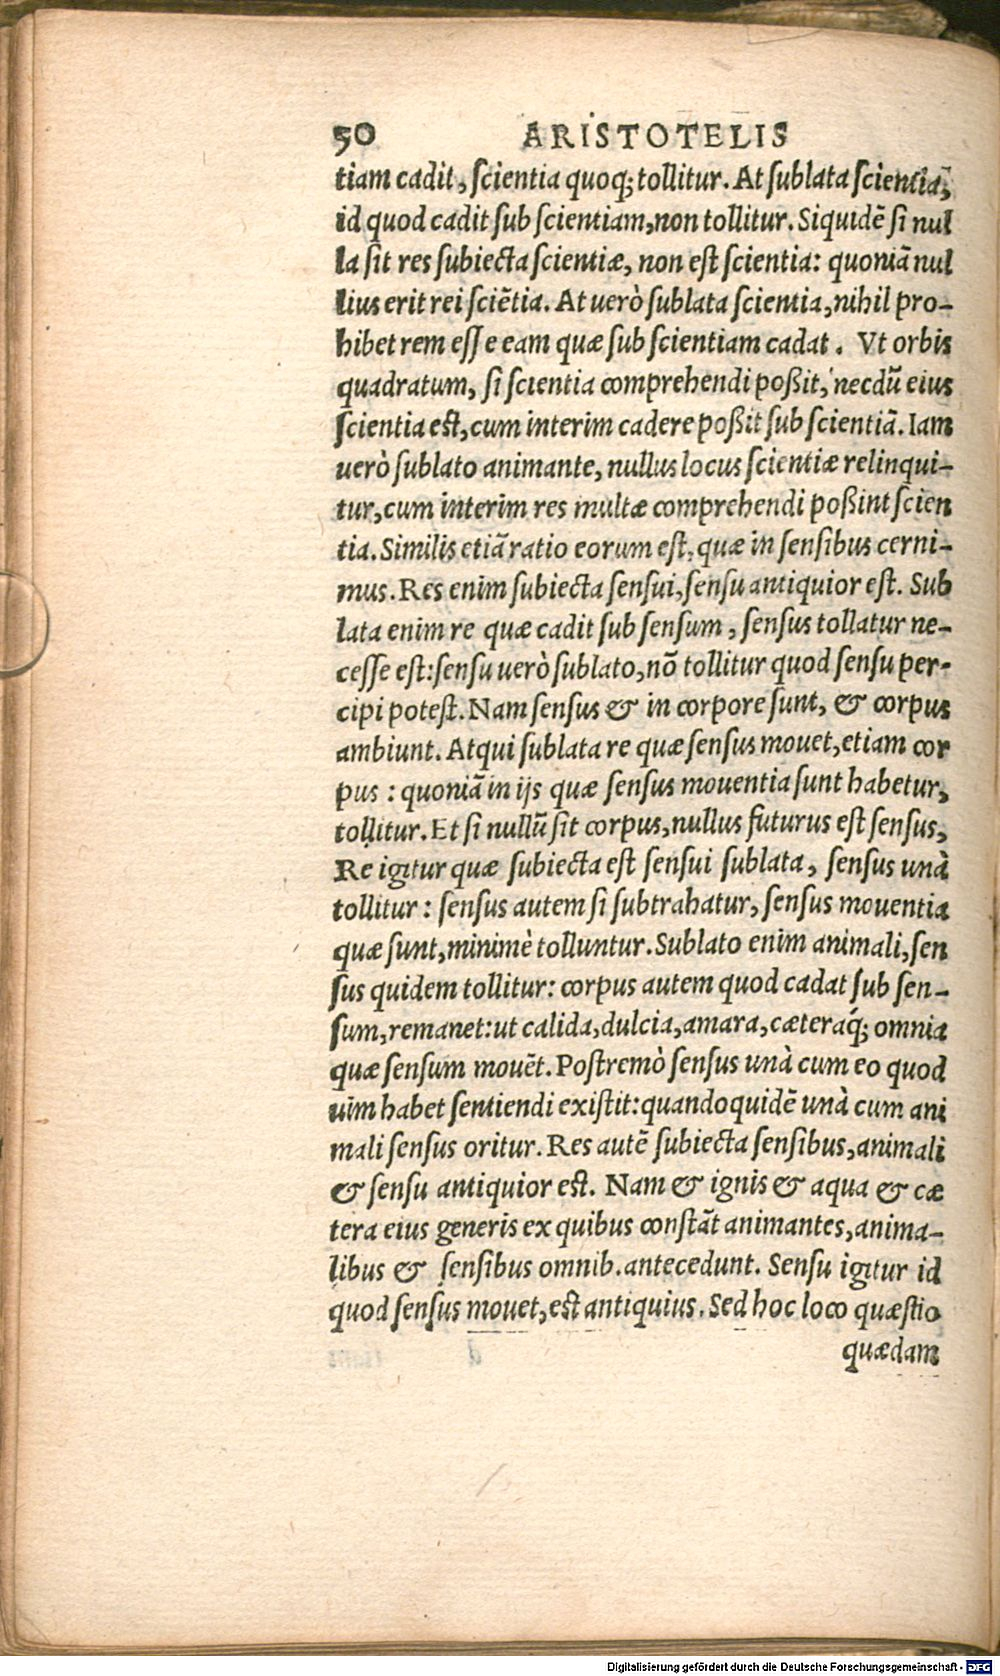 50 ARISTOTELIS
tiam cadit, ſcientia quoq; tollitur. At ſublata ſcientia,
id quod cadit ſub ſcientiam, non tollitur. Siquidẽ ſi nul
la ſit res ſubiecta ſcientiæ, non eſt ſcientia: quoniã nul
lius erit rei ſciẽtia. At uerò ſublata ſcientia, nihil pro-
hibet rem eſſe eam quæ ſub ſcientiam cadat. Vt orbis
quadratum, ſi ſcientia comprehendi poßit, necdũ eius
ſcientia eſt, cum interim cadere poßit ſub ſcientiã. Iam
uerò ſublato animante, nullus locus ſcientiæ relinqui-
tur, cum interim res multæ comprehendi poßint ſcien
tia. Similis etiã ratio eorum eſt, quæ in ſenſibus cerni-
mus. Res enim ſubiecta ſenſui, ſenſu antiquior eſt. Sub
lata enim re quæ cadit ſub ſenſum, ſenſus tollatur ne-
ceſſe eſt: ſenſu uerò ſublato, nõ tollitur quod ſenſu per-
cipi poteſt. Nam ſenſus & in corpore ſunt, & corpus
ambiunt. Atqui ſublata re quæ ſenſus mouet, etiam cor
pus: quoniã in ijs quæ ſenſus mouentia ſunt habetur,
tollitur. Et ſi nullũ ſit corpus, nullus futurus eſt ſenſus,
Re igitur quæ ſubiecta eſt ſenſui ſublata, ſenſus unà
tollitur: ſenſus autem ſi ſubtrahatur, ſenſus mouentia
quæ ſunt, minimè tolluntur. Sublato enim animali, ſen
ſus quidem tollitur: corpus autem quod cadat ſub ſen-
ſum, remanet: ut calida, dulcia, amara, cæteraq́; omnia
quæ ſenſum mouẽt. Poſtremò ſenſus unà cum eo quod
uim habet ſentiendi exiſtit: quandoquidẽ unà cum ani
mali ſenſus oritur. Res autẽ ſubiecta ſenſibus, animali
& ſenſu antiquior eſt. Nam & ignis & aqua & cæ
tera eius generis ex quibus conſtãt animantes, anima-
libus & ſenſibus omnib. antecedunt. Senſu igitur id
quod ſenſus mouet, eſt antiquius. Sed hoc loco quæſtio
quædam
Digitalisierung gefördert durch die Deutsche Forschungsgemeinschaft - DFG